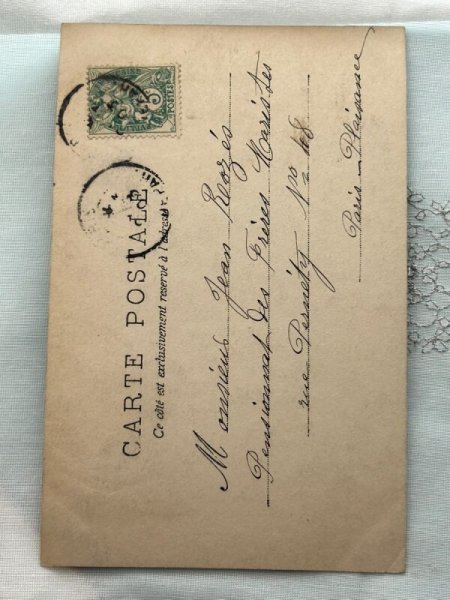 CARTE POSTALE
Ce côté est exclusivement réservé à l'adresse
POSTES
Monsieur Jean
Pensionnat des Frères Maristes
rue Pernéty No 48
Paris-Plaisance